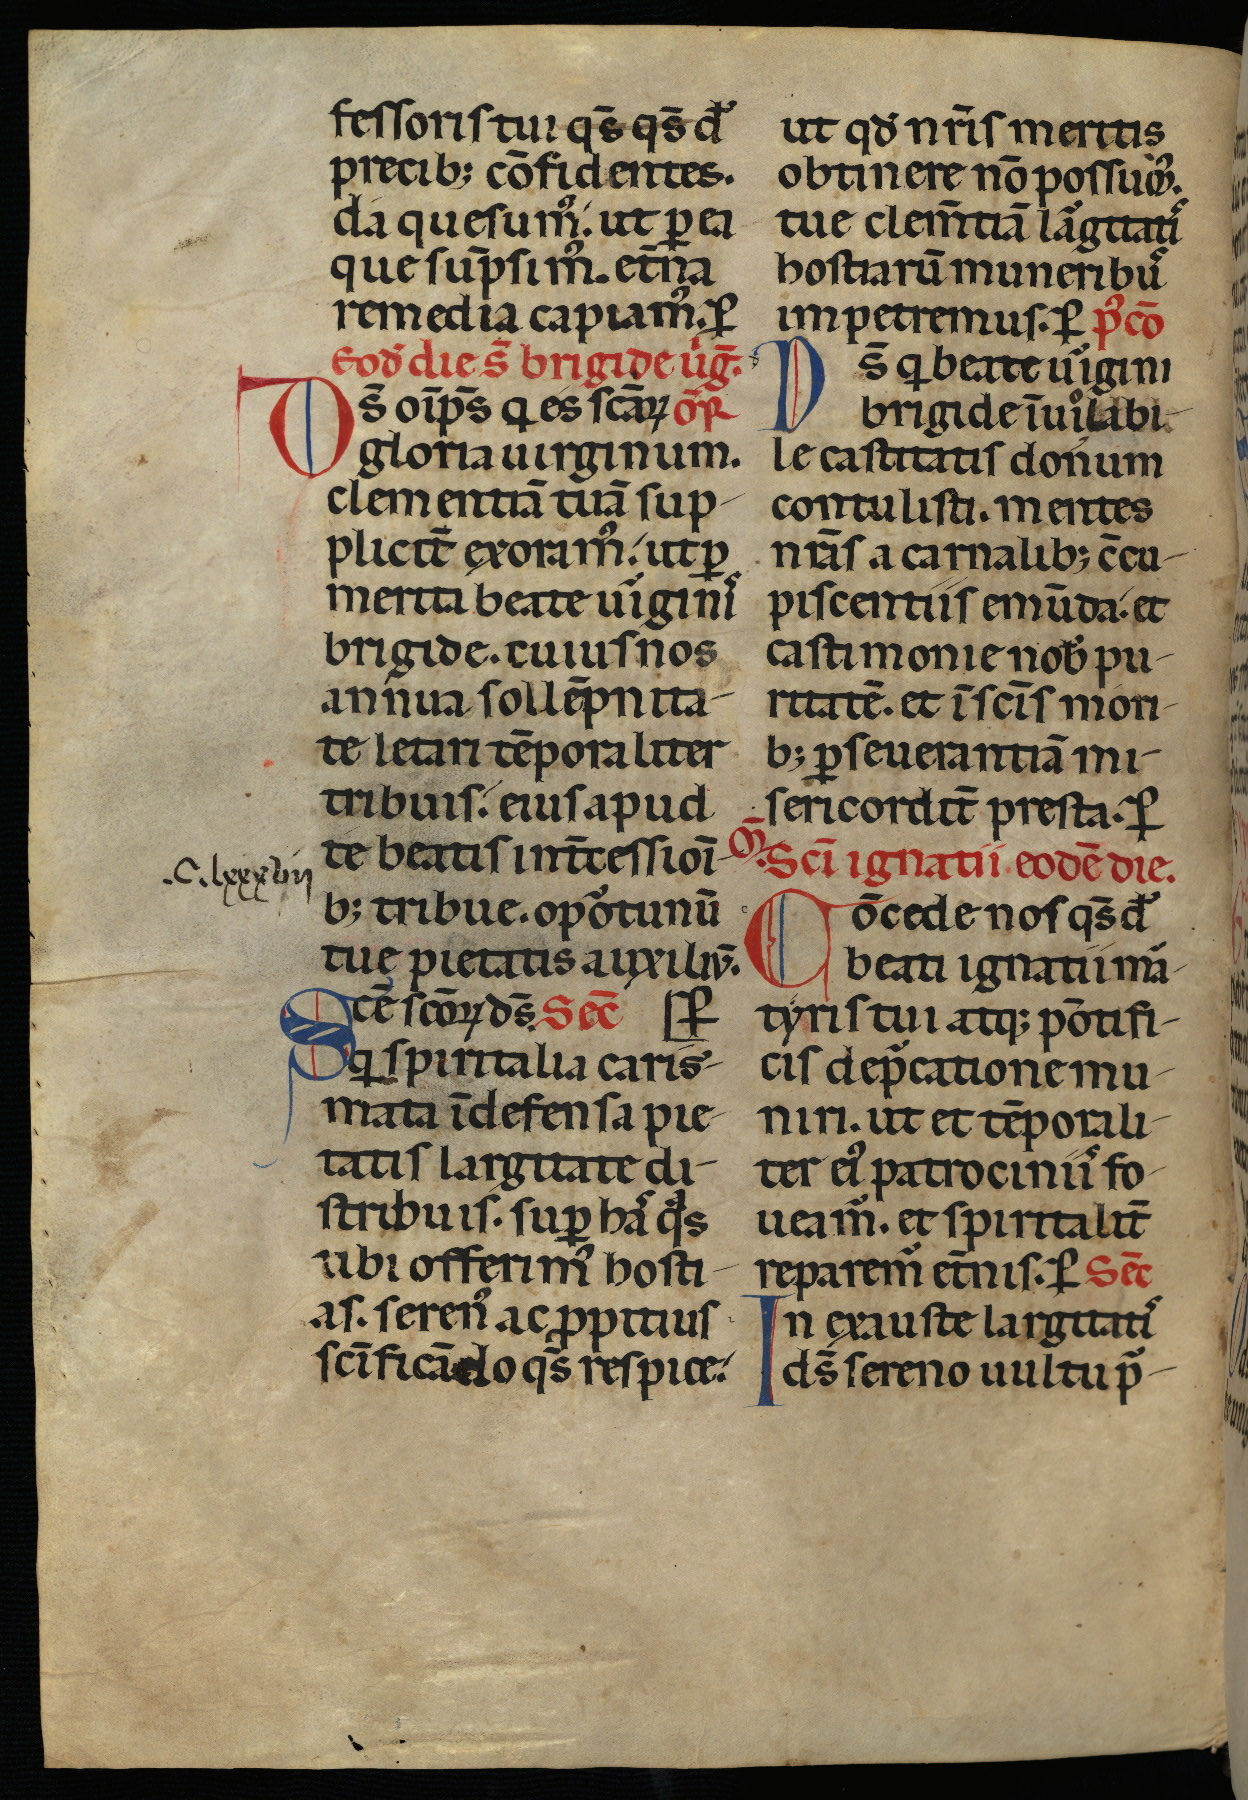 fessoris tui qs̄ qs̄ d̄s
precib; cōfidentes.
da quesumꝰ. ut ꝑ ea
que sūpsimꝰ. et̄na
remedia capiamꝰ. ꝑ
Eod̄ die s̄ brigide uͥḡ.
Ds̄ oīp̄s q̇ es sc̄aꝝ or̄
gloria uirginum.
clementiā tuā sup-
plicit̄ exoramꝰ. ut ꝑ
merita beate uͥginiˢ
brigide. cuius nos
annua sollēpnita-
te letari tēporaliter
tribuis. eius apud
te beatis int̄cessioī-
.C.lxxxviij
b; tribue. opoͬtunū
tuę pietatis auxiliū.
Sc̄e sc̄oꝝ ds̄. Sec̄ ꝑ
q̇ spiritalia caris-
mata īdefensa pie-
tatis largitate di-
stribuis. suꝑ haˢ qͣs
tibi offerimꝰ hosti-
as. serenꝰ ac ꝓpitius
sc̄ificādo qs̄ respice.
ut qd̄ nr̄is meritis
obtinere nō possumꝰ.
tue clem̄tiā laͬgitatiˢ
hostiarū muneribuˢ
impetremus. ꝑ pꝰcō
Ds̄ q̇ beate uͥgini
brigide īuiolabi-
le castitatis donum
contulisti. mentes
nr̄as a carnalib; c̄cu-
piscentiis emūda. et
castimonie nob̄ pu-
ritatē. et ī sc̄is mori-
b; ꝑseuerantiā mi-
sericordit̄ presta. ꝑ
Or̄. Sc̄i ignatii eodē die.
Cōcede nos qs̄ d̄s
beati ignatii maͬ-
tyris tui atq; pōtifi-
cis depͨcatione mu-
niri. ut et tēporali-
ter eiꝰ patrociniiˢ fo-
ueamͬ. et spiritalit̄
reparemͬ et̄nis. ꝑ Sec̄
In exauste largitatiˢ
ds̄ sereno uultu p̄-